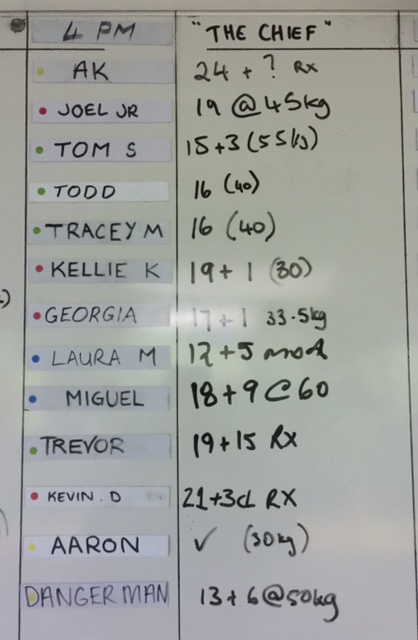 4 PM "THE CHIEF"
AK 24 + ? Rx
JOEL JR 19 @ 45kg
TOM S 15+3 (55kg)
TODD 16 (40)
TRACEY M 16 (40)
KELLIE K 19 + 1 (30)
GEORGIA 17 + 1 33.5kg
LAURA M 12 + 5 mod
MIGUEL 18 + 9 @ 60
TREVOR 19 + 15 RX
KEVIN. D 21+3cl RX
AARON ✓ (30kg)
DANGERMAN 13 + 6 @ 50kg